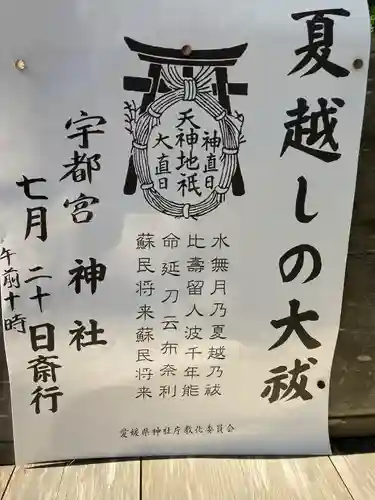 夏越しの大祓
天神地祇
神直日
大直日
水無月乃夏越乃祓
比壽留人波千年能
命延刀云布奈利
蘇民将来蘇民将来
宇都宮神社
七月二十日斎行
午前十時
愛媛県神社庁教化委員会